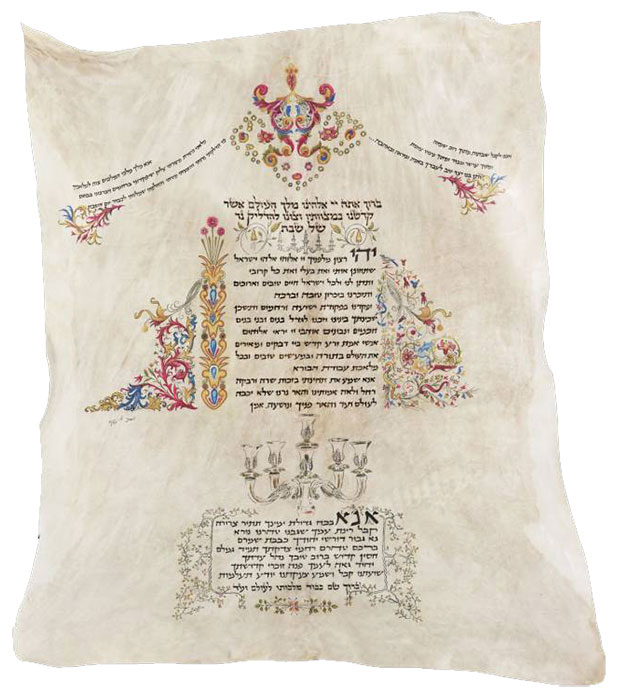 ברוך אתה יי אלהינו מלך העולם אשר
קדשנו במצוותיו וצונו להדליק נר
של שבת
יהי רצון מלפניך יי אלוהי ואלהי ישראל
שתחונן אותי ואת בעלי ואת כל קרובי
ותתן לנו ולכל ישראל חיים טובים וארוכים
ותזכרנו בזכרון טובה וברכה
ותפקדנו בפקודת ישועה ורחמים ותשכן
שכינתך בינינו וזכנו לגדל בנים ובני בנים
חכמים ונבונים אוהבי יי יראי אלוהים
אנשי אמת זרע קדש ביי דבקים ומאירים
את העולם בתורה ובמעשים טובים ובכל
מלאכת עבודת הבורא
אנא שמע את תחינתי בזכות שרה ורבקה
רחל ולאה אמותינו והאר נרנו שלא יכבה
לעולם ועד והאר פניך ונושעה אמן
אנא בכח גדולת ימינך תתיר צרורה
קבל רינת עמך שגבנו טהרנו נורא
נא גבור דורשי יחודך כבבת שמרם
ברכם טהרם רחמי צדקתך תמיד גמלם
חסין קדוש ברוב טובך נהל עדתך
יחיד גאה לעמך פנה זוכרי קדושתך
שועתנו קבל ושמע צעקתנו יודע תעלומות
ברוך שם כבוד מלכותו לעולם ועד